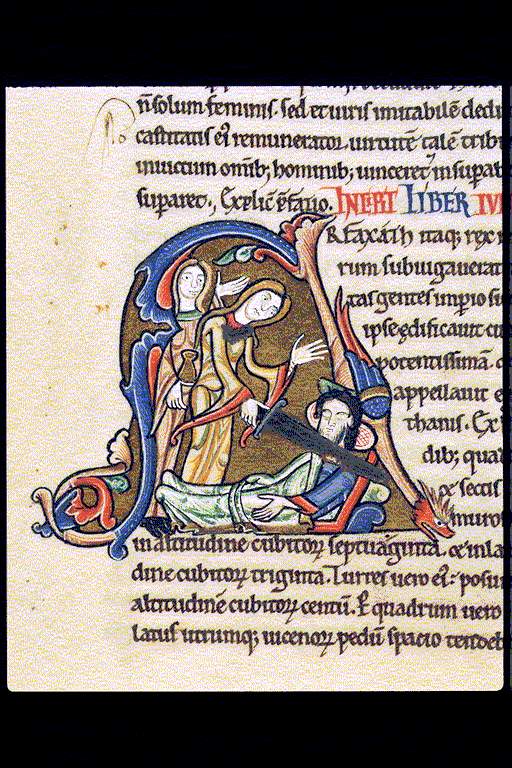 n̄ solum feminis. sed et uiris imitabilē dedi
castitatis ei remunerator. uirtutē talē trib
inuictum omīb; hominib; uinceret, insupab
superaret. Explic̄ p̄fatio. INCIPIT LIBER IU
ARFAXATH itaq; rex
rum subiugauerat
tas gentes impio su
ipse ędificauit ciu
potentissimā.
appellauit e
thanis. Ex
dib; quad
& sectis
muros
in altitudine cubitoꝝ septuaginta. & in la
dine cubitoꝝ triginta. Turres uero ei᷒ posu
altitudinē cubitoꝝ centū. P quadrum uero
latus utrumq; uicenoꝝ pedū spacio tendeb